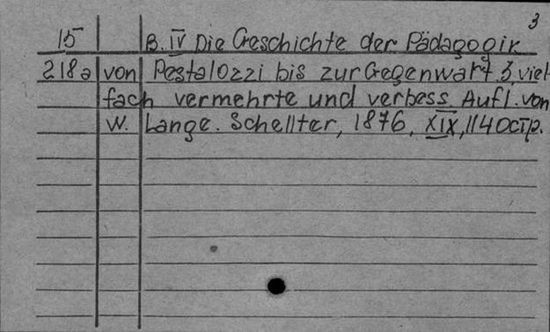 3
15 B. IV Die Geschichte der Pädagogik
218a von Pestalozzi bis zur Gegenwart. 3. viel
fach vermehrte und verbess. Aufl. von
W. Lange. Schellter, 1876, XIX, 1140 стр.